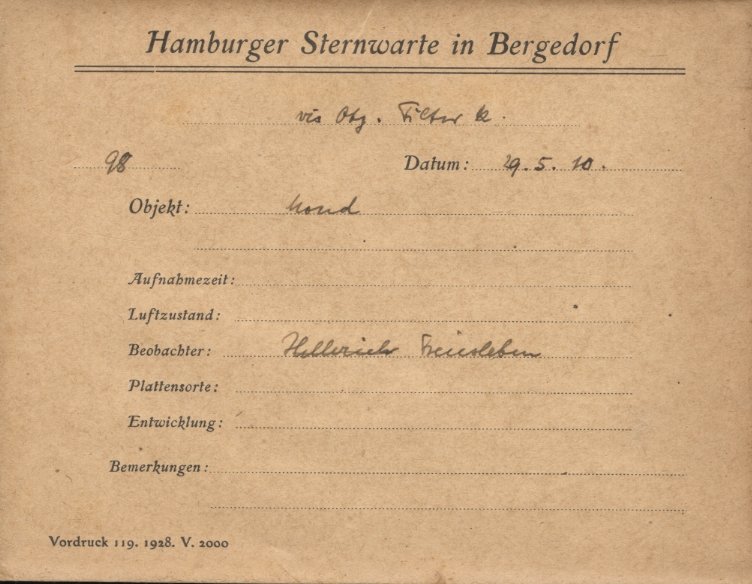 Hamburger Sternwarte in Bergedorf
vis Obj. Filter k.
98 Datum: 29.5.10.
Objekt: Mond
Aufnahmezeit:
Luftzustand:
Beobachter: Hellerich Freiesleben
Plattensorte:
Entwicklung:
Bemerkungen:
Vordruck 119. 1928. V. 2000